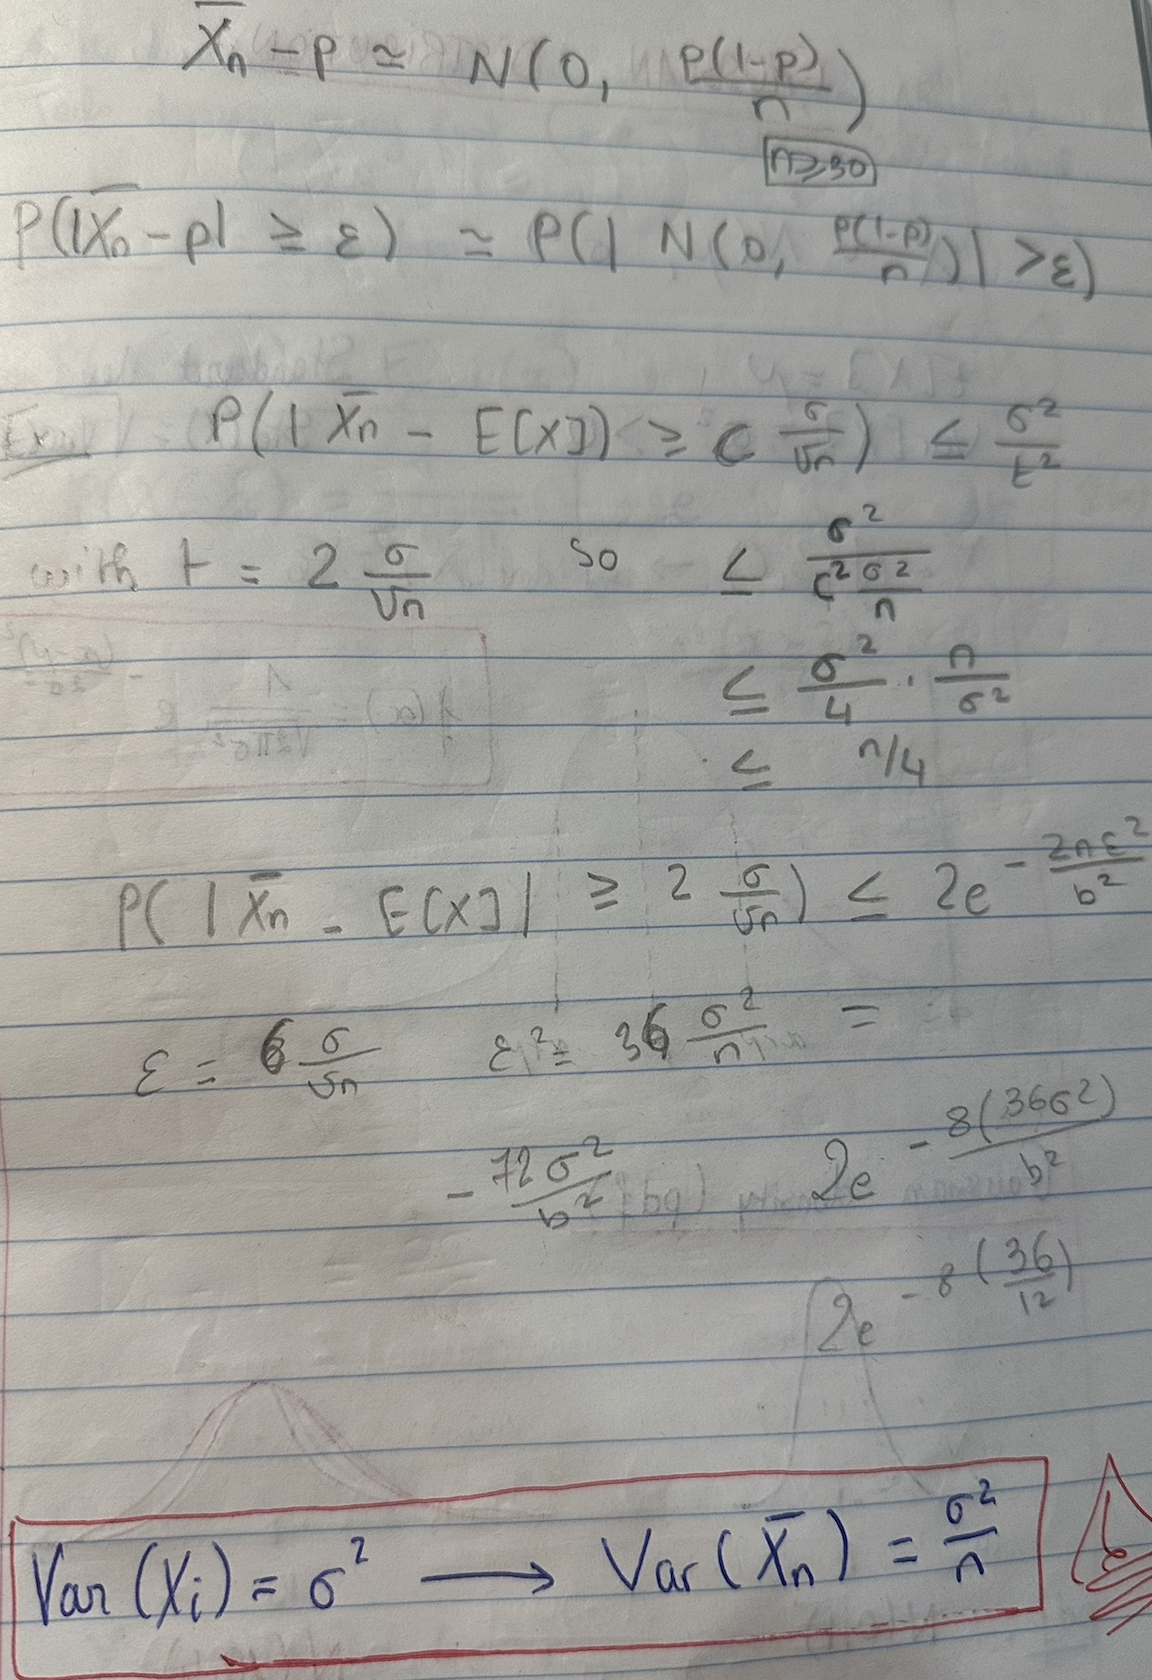 X̄n - p ≃ N(0, p(1-p)/n)
n≥30
P(|X̄n - p| ≥ ε) ≃ P(| N(0, p(1-p)/n)| > ε)
Ex P(|X̄n - E[X]) ≥ c σ/√n) ≤ σ²/t²
with t = 2 σ/√n so ≤ σ²/(c² σ²/n)
≤ σ²/4 · n/σ²
≤ n/4
P(|X̄n - E[X]| ≥ 2 σ/√n) ≤ 2e^(-2nε²/b²)
ε = 6 σ/√n ε² = 36 σ²/n =
-72σ²/b² 2e^(-8(36σ²)/b²)
2e^(-8(36/12))
Var(Xi) = σ² → Var(X̄n) = σ²/n